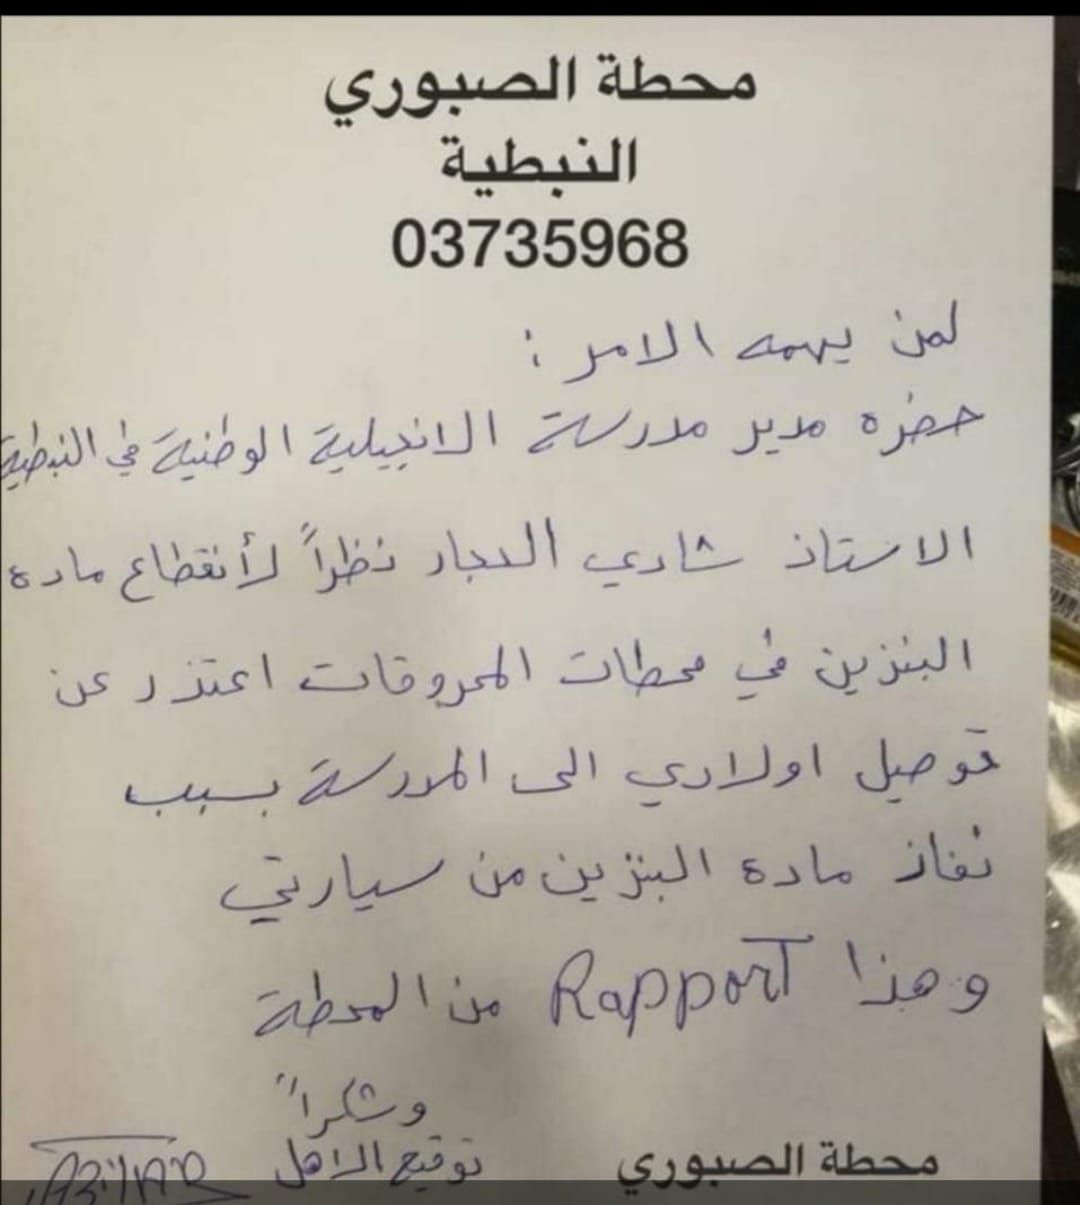 محطة الصبوري
النبطية
03735968
لمن يهمه الامر :
حضرة مدير مدرسة الانجيلية الوطنية في النبطية
الاستاذ شادي الحجار نظراً لأنقطاع مادة
البنزين في محطات المحروقات اعتذر عن
توصيل اولادي الى المدرسة بسبب
نفاذ مادة البنزين من سيارتي
وهذا Rapport من المحطة
وشكراً
توقيع الاهل
محطة الصبوري